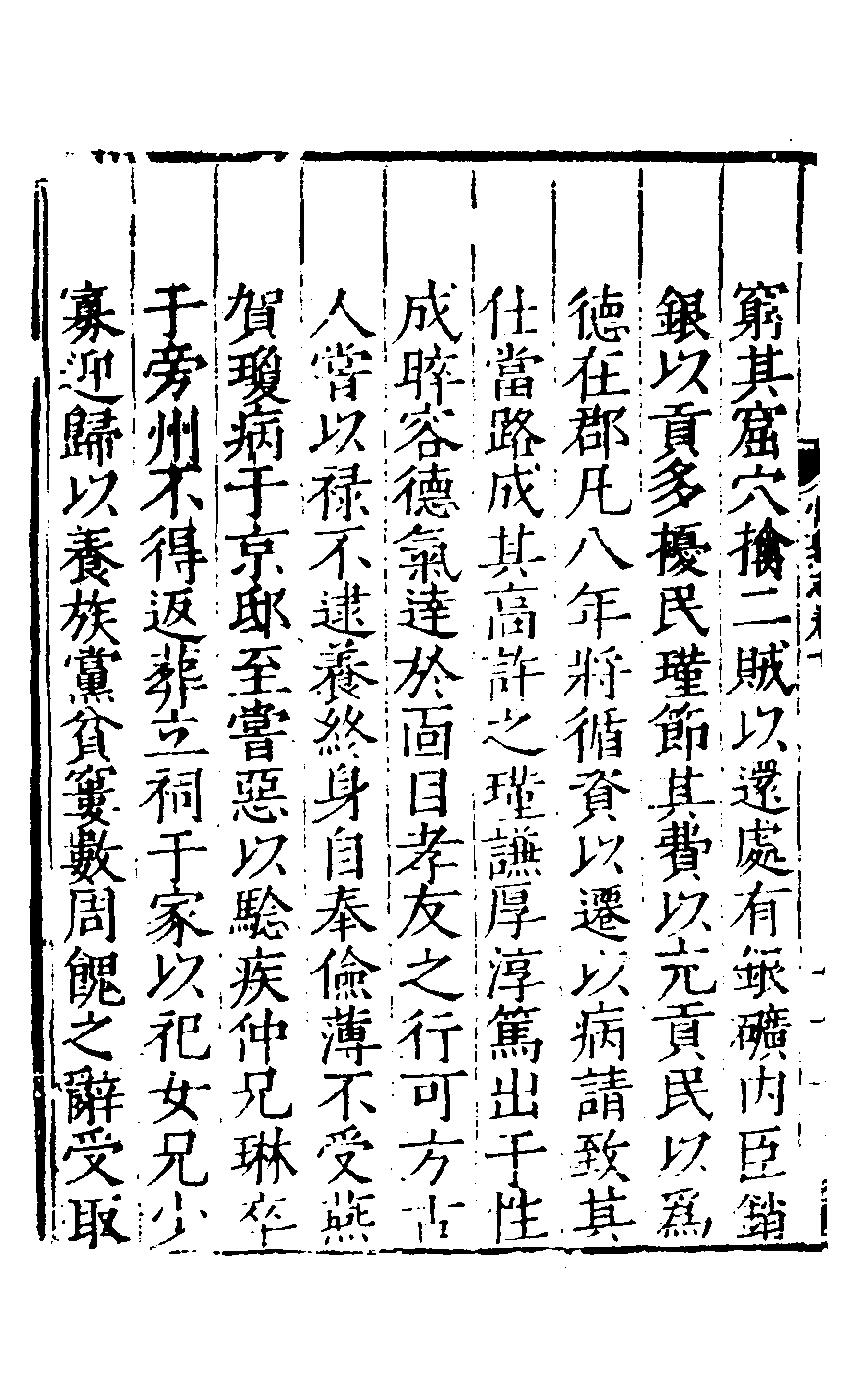 窮其窟穴擒二賊以還處有銀礦内臣銷
銀以貢多擾民瑾節其費以充貢民以爲
德在郡凡八年將循資以遷以病請致其
仕當路成其高許之瑾謙厚淳篤出于性
成睟容德氣達於面目孝友之行可方古
人嘗以禄不逮養終身自奉儉薄不受燕
賀瓊病于京邸至嘗惡以驗疾仲兄琳卒
于旁州不得返葬立祠于家以祀女兄少
寡迎歸以養族黨貧窶數周餽之辭受取